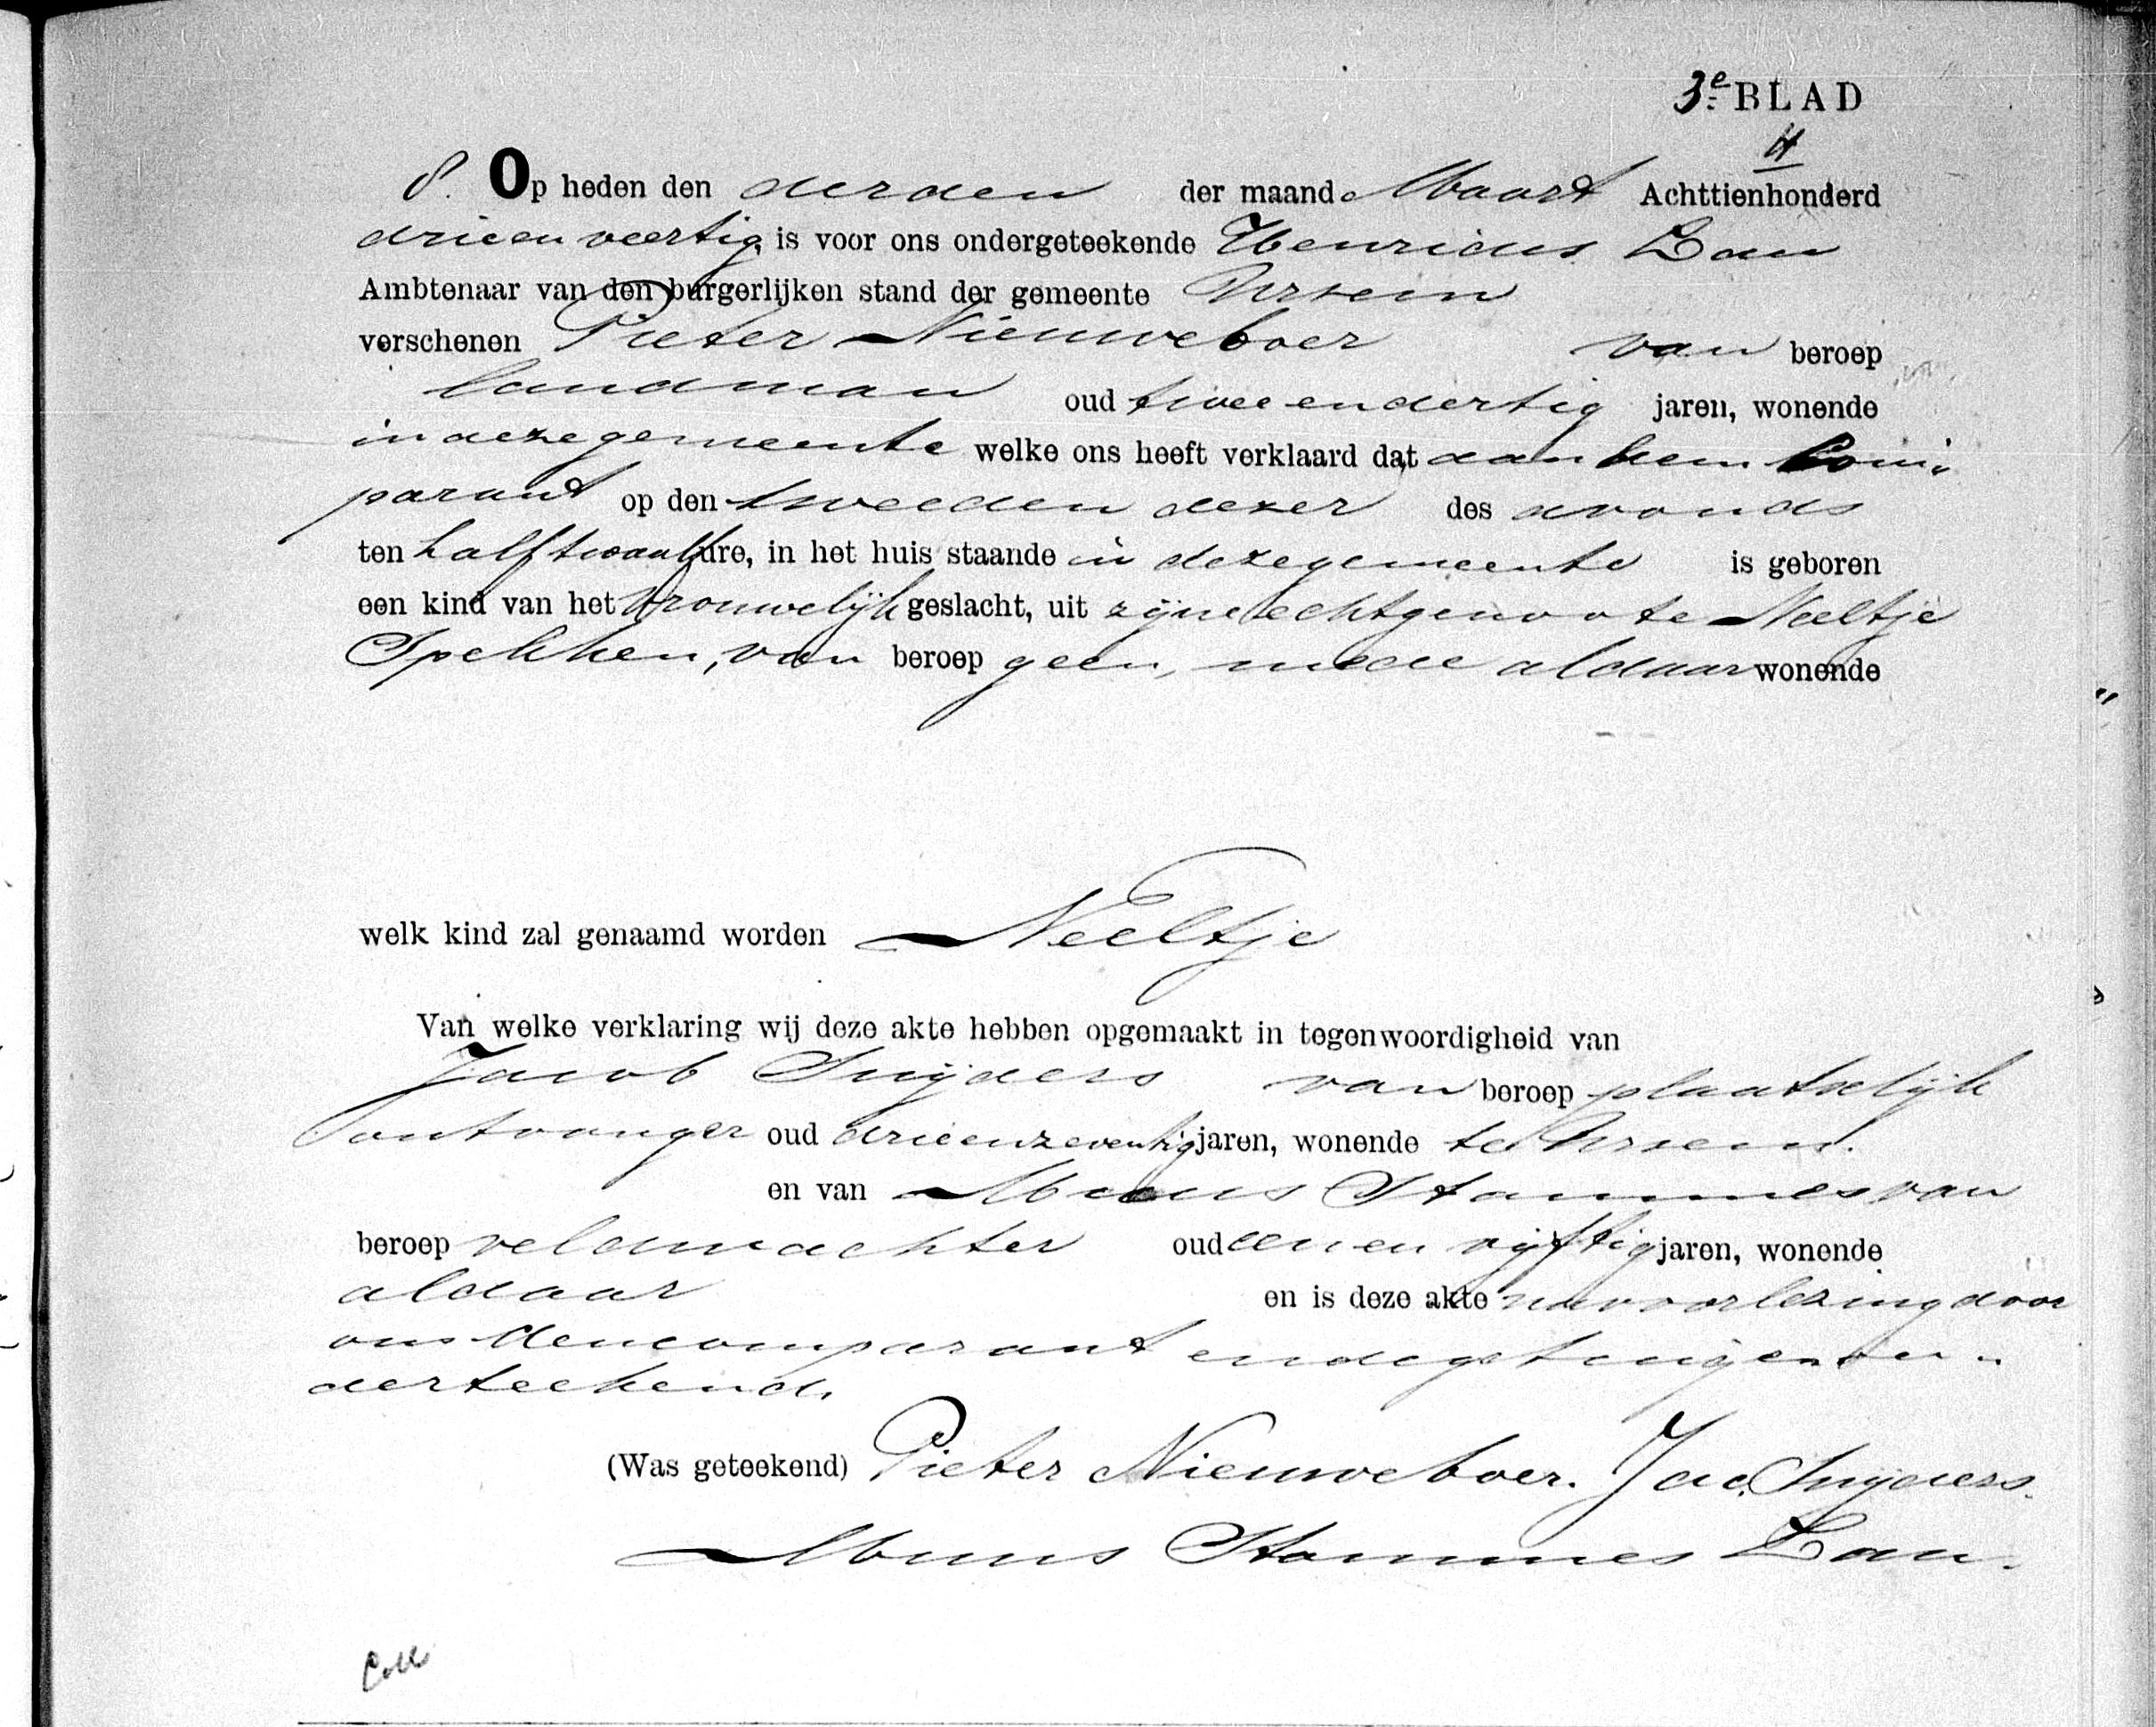 3e BLAD
4
8. Op heden den derden der maand Maart Achttienhonderd
drieenveertig is voor ons ondergeteekende Henricus Lau
Ambtenaar van den burgerlijken stand der gemeente Ursem
verschenen Pieter Nieuweboer van beroep
landman oud twee en dertig jaren, wonende
in deze gemeente welke ons heeft verklaard dat aan hem Com-
parant op den tweeden dezer des avonds
ten half twaalf ure, in het huis staande in deze gemeente is geboren
een kind van het Vrouwelijk geslacht, uit zijne echtgenoote Neeltje
Spekken, van beroep geen, mede aldaar wonende
welk kind zal genaamd worden Neeltje
Van welke verklaring wij deze akte hebben opgemaakt in tegenwoordigheid van
Jacob Snijders van beroep plaatselijk
ontvanger oud drieenzeventig jaren, wonende te Ursem.
en van Stammes van
beroep veldwachter oud een en vijftig jaren, wonende
aldaar en is deze akte na voorlezing door
ons den comparant en de getuigen on-
derteekend.
(Was geteekend) Pieter Nieuweboer. Jac. Snijders.
Stammes Lau.